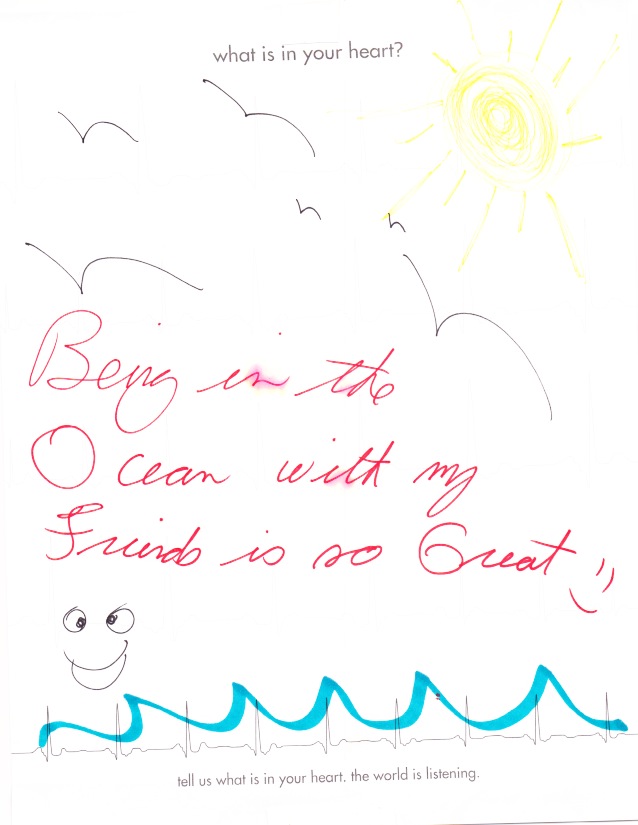 what is in your heart?
Being in the
Ocean with my
Friends is so Great
tell us what is in your heart. the world is listening.